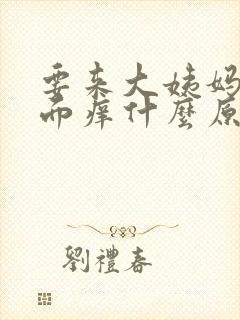 要来大姨妈
而痒什麼原
劉禮春